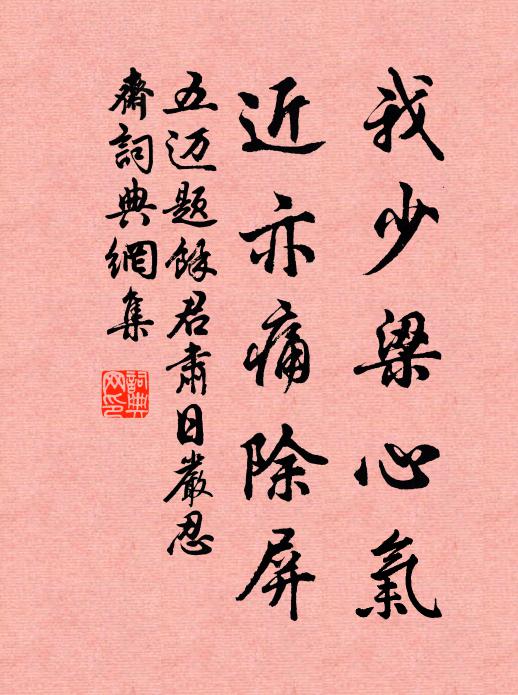 我少梁心氣
近亦痛除屏
五迈题餘君肅日嚴忍
齋詞典網集
詞典
网印